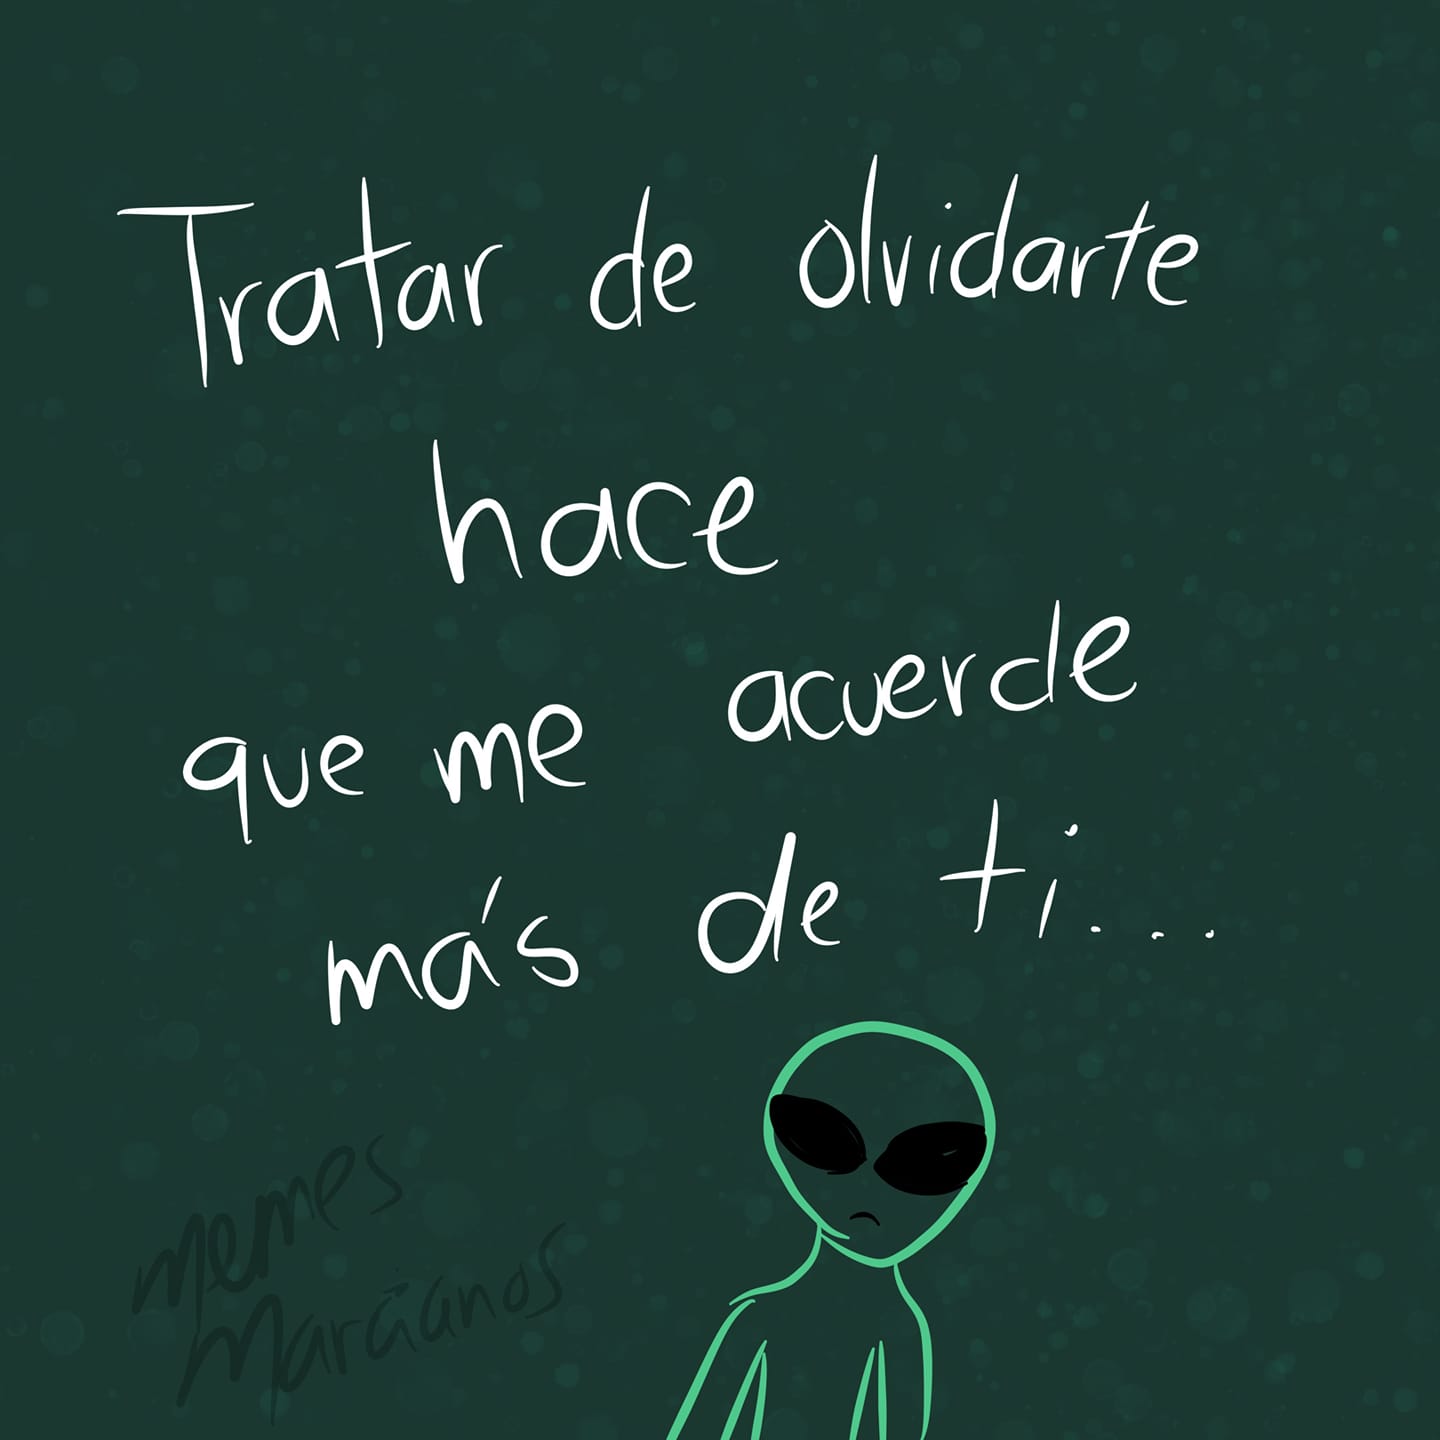 Tratar de olvidarte
hace
que me acuerde
más de ti...
memes
Marcianos